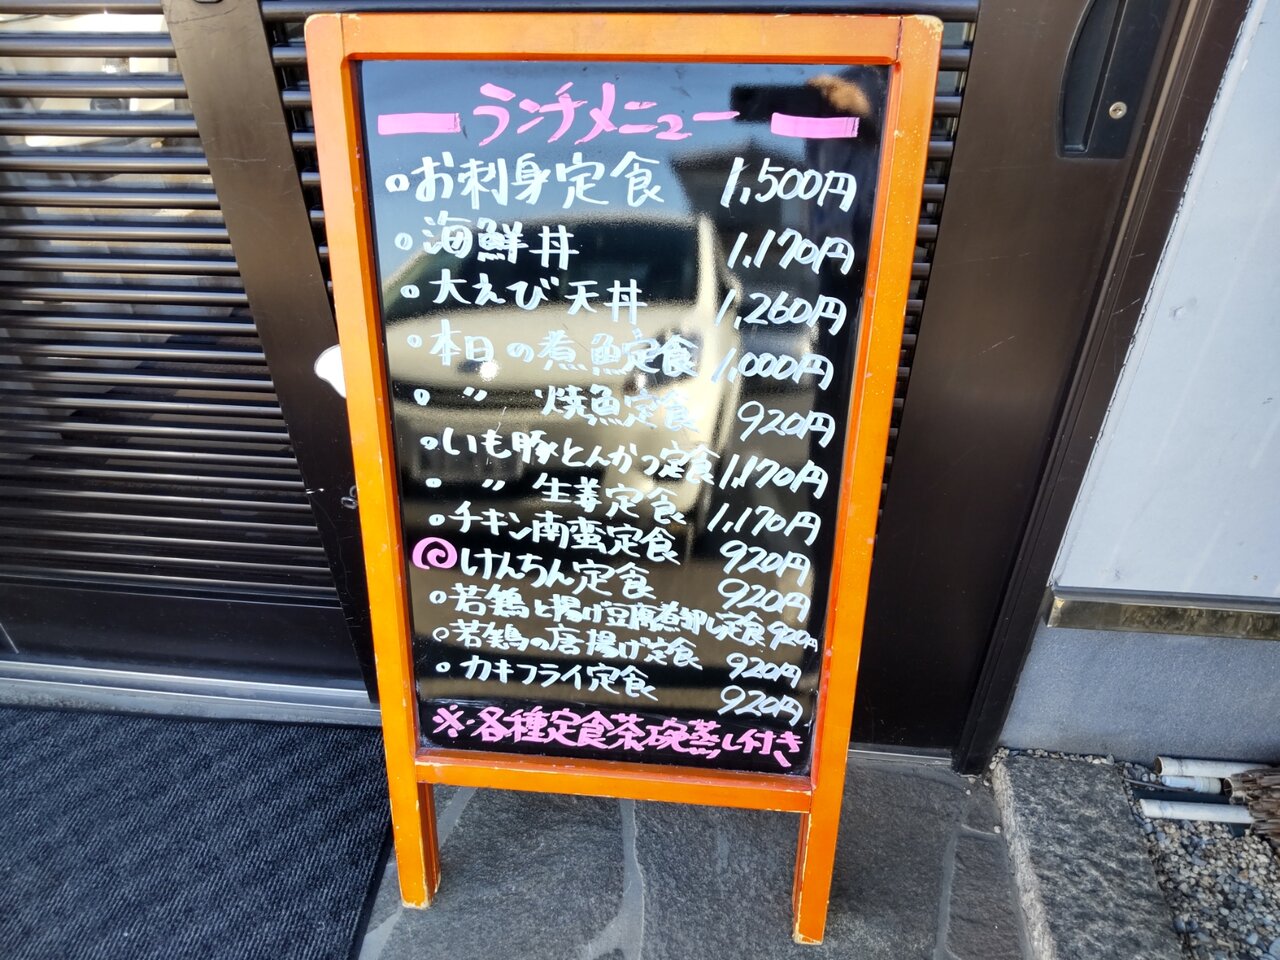 ランチメニュー
お刺身定食 1,500円
海鮮丼 1,170円
大えび天丼 1,260円
本日の煮魚定食 1,000円
〃 焼魚定食 920円
いも豚とんかつ定食 1,170円
〃 生姜定食 1,170円
チキン南蛮定食 920円
けんちん定食 920円
若鶏と揚げ豆腐煮卸し定食 920円
若鶏の唐揚げ定食 920円
カキフライ定食 920円
※各種定食茶碗蒸し付き